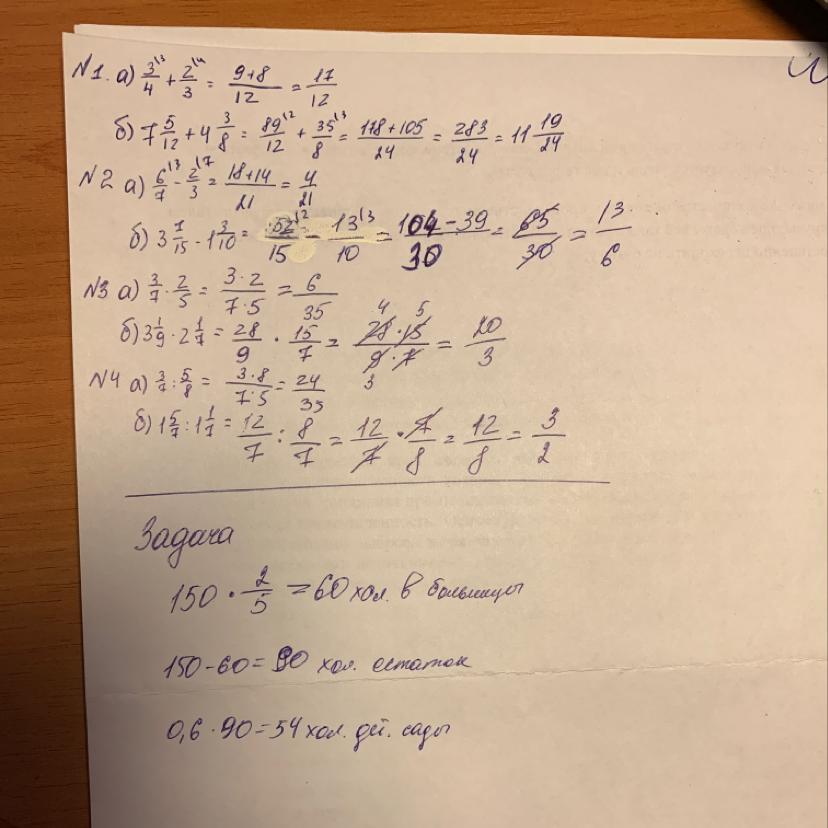 №1. а) 3/4 ¹³ + 2/3 ¹⁴ = (9+8)/12 = 17/12
б) 7 5/12 + 4 3/8 = 89/12 ¹² + 35/8 ¹³ = (178+105)/24 = 283/24 = 11 19/24
№2 а) 6/7 ¹³ - 2/3 ¹⁷ = (18+14)/21 = 4/21
б) 3 7/15 - 1 3/10 = 52/15 ¹² - 13/10 ¹³ = (104-39)/30 = 65/30 = 13/6
№3 а) 3/7 · 2/5 = (3·2)/(7·5) = 6/35
б) 3 1/9 · 2 1/7 = 28/9 · 15/7 = (28·15)/(9·7) 4 5 3 = 20/3
№4 а) 3/7 : 5/8 = (3·8)/(7·5) = 24/35
б) 1 5/7 : 1 1/7 = 12/7 : 8/7 = 12/7 · 7/8 = 12/8 = 3/2
Задача
150 · 2/5 = 60 хол. в больницы
150-60=90 хол. остаток
0,6·90=54 хол. дет. сады